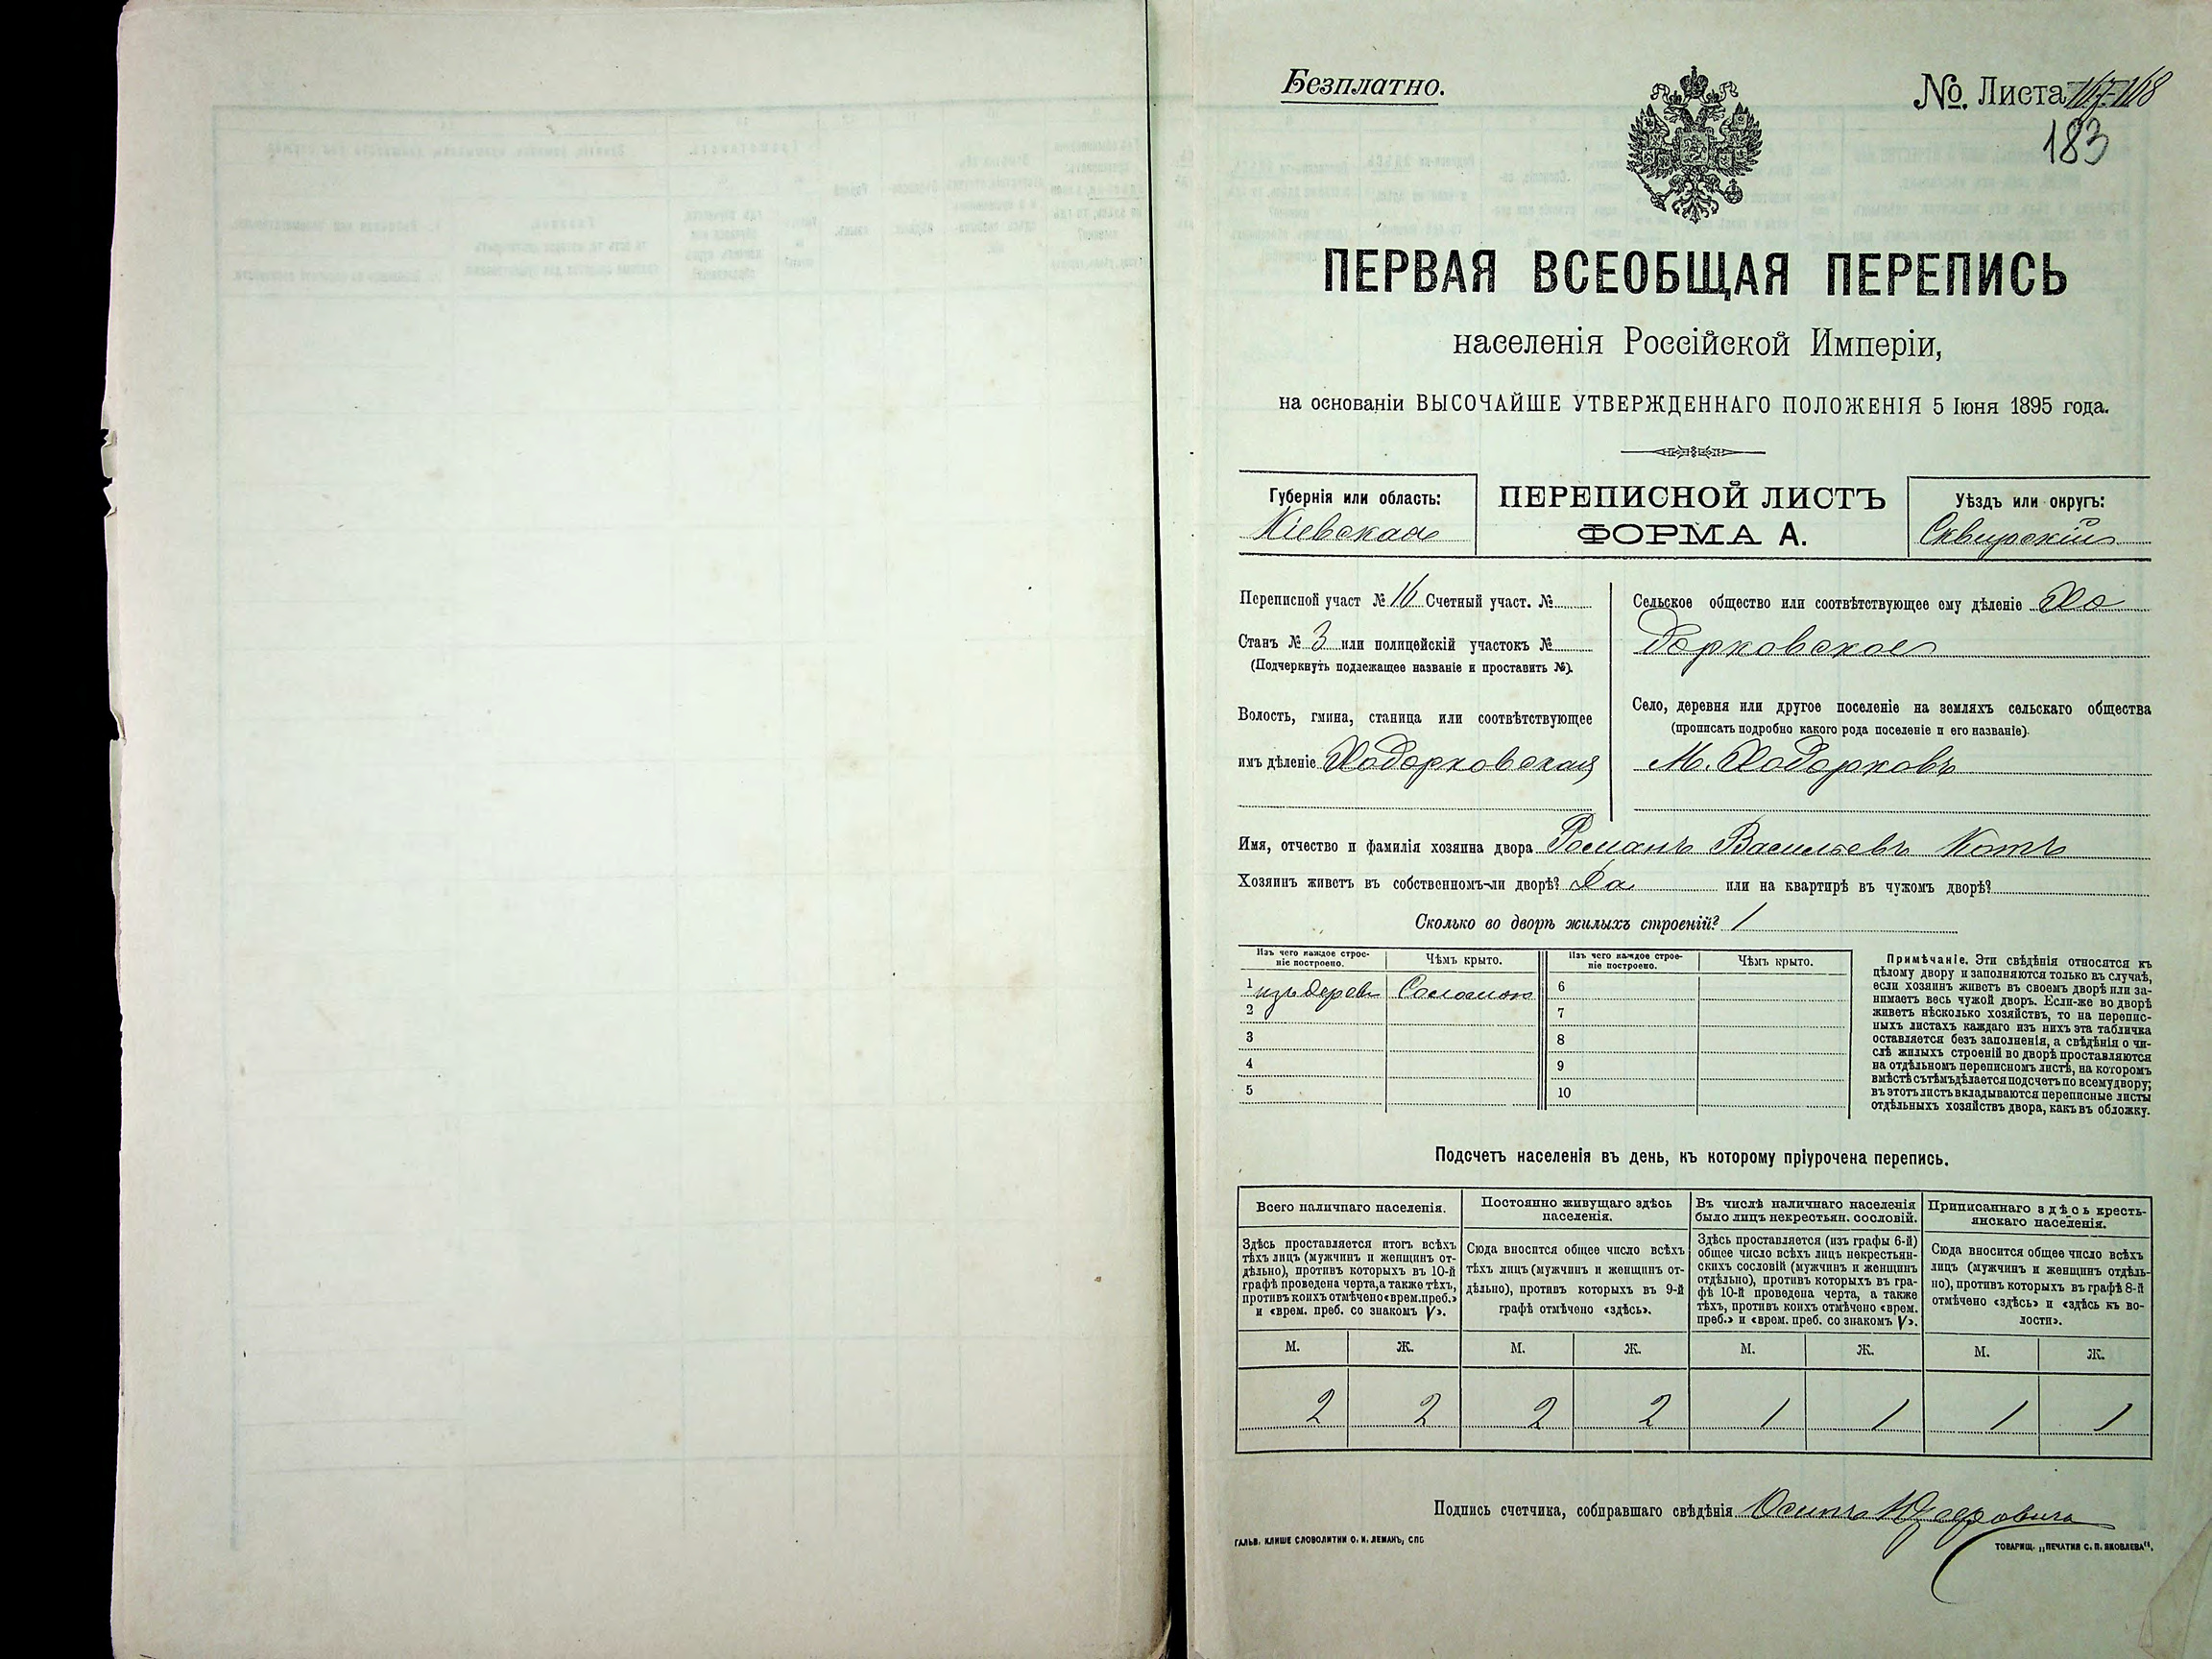 Безплатно.
№. Листа 168
183
ПЕРВАЯ ВСЕОБЩАЯ ПЕРЕПИСЬ
населенія Россійской Имперіи,
на основаніи ВЫСОЧАЙШЕ УТВЕРЖДЕННАГО ПОЛОЖЕНІЯ 5 Іюня 1895 года.
Губернія или область:
Кіевская
ПЕРЕПИСНОЙ ЛИСТЪ
ФОРМА А.
Уѣздъ или округъ:
Сквирскій
Переписной участ № 16 Счетный участ. №
Станъ № 3 или полицейскій участокъ №
(Подчеркнуть подлежащее названіе и проставить №).
Волость, гмина, станица или соотвѣтствующее
имъ дѣленіе Ходорковская
Сельское общество или соотвѣтствующее ему дѣленіе Хо
дорковское
Село, деревня или другое поселеніе на земляхъ сельскаго общества
(прописать подробно какого рода поселеніе и его названіе).
М. Ходорковъ
Имя, отчество и фамилія хозяина двора Романъ Васильевъ Котъ
Хозяинъ живетъ въ собственномъ-ли дворѣ? Да или на квартирѣ въ чужомъ дворѣ?
Сколько во дворѣ жилыхъ строеній? 1
Изъ чего каждое строе-
ніе построено.
Чѣмъ крыто.
Изъ чего каждое строе-
ніе построено.
Чѣмъ крыто.
1 изъ дерев Соломою
2
3
4
5
6
7
8
9
10
Примѣчаніе. Эти свѣдѣнія относятся къ
цѣлому двору и заполняются только въ случаѣ,
если хозяинъ живетъ въ своемъ дворѣ или за-
нимаетъ весь чужой дворъ. Если-же во дворѣ
живетъ нѣсколько хозяйствъ, то на перепис-
ныхъ листахъ каждаго изъ нихъ эта табличка
оставляется безъ заполненія, а свѣдѣнія о чи-
слѣ жилыхъ строеній во дворѣ проставляются
на отдѣльномъ переписномъ листѣ, на которомъ
вмѣстѣ съ тѣмъ дѣлается подсчетъ по всему двору;
въ этотъ листъ вкладываются переписные листы
отдѣльныхъ хозяйствъ двора, какъ въ обложку.
Подсчетъ населенія въ день, къ которому пріурочена перепись.
Всего наличнаго населенія.
Здѣсь проставляется итогъ всѣхъ
тѣхъ лицъ (мужчинъ и женщинъ от-
дѣльно), противъ которыхъ въ 10-й
графѣ проведена черта, а также тѣхъ,
противъ коихъ отмѣчено «врем. преб.»
и «врем. преб. со знакомъ V».
Постоянно живущаго здѣсь
населенія.
Сюда вносится общее число всѣхъ
тѣхъ лицъ (мужчинъ и женщинъ от-
дѣльно), противъ которыхъ въ 9-й
графѣ отмѣчено «здѣсь».
Въ числѣ наличнаго населенія
было лицъ некрестьян. сословій.
Здѣсь проставляется (изъ графы 6-й)
общее число всѣхъ лицъ некрестьян-
скихъ сословій (мужчинъ и женщинъ
отдѣльно), противъ которыхъ въ гра-
фѣ 10-й проведена черта, а также
тѣхъ, противъ коихъ отмѣчено «врем.
преб.» и «врем. преб. со знакомъ V».
Приписаннаго здѣсь кресть-
янскаго населенія.
Сюда вносится общее число всѣхъ
лицъ (мужчинъ и женщинъ отдѣль-
но), противъ которыхъ въ графѣ 8-й
отмѣчено «здѣсь» и «здѣсь къ во-
лости».
М. Ж. М. Ж. М. Ж. М. Ж.
2 2 2 2 1 1 1 1
Подпись счетчика, собиравшаго свѣдѣнія Осипъ
ГАЛЬВ. КЛИШЕ СЛОВОЛИТНИ О. И. ЛЕМАНЪ, СПС
ТОВАРИЩ. „ПЕЧАТНЯ С. П. ЯКОВЛЕВА“.